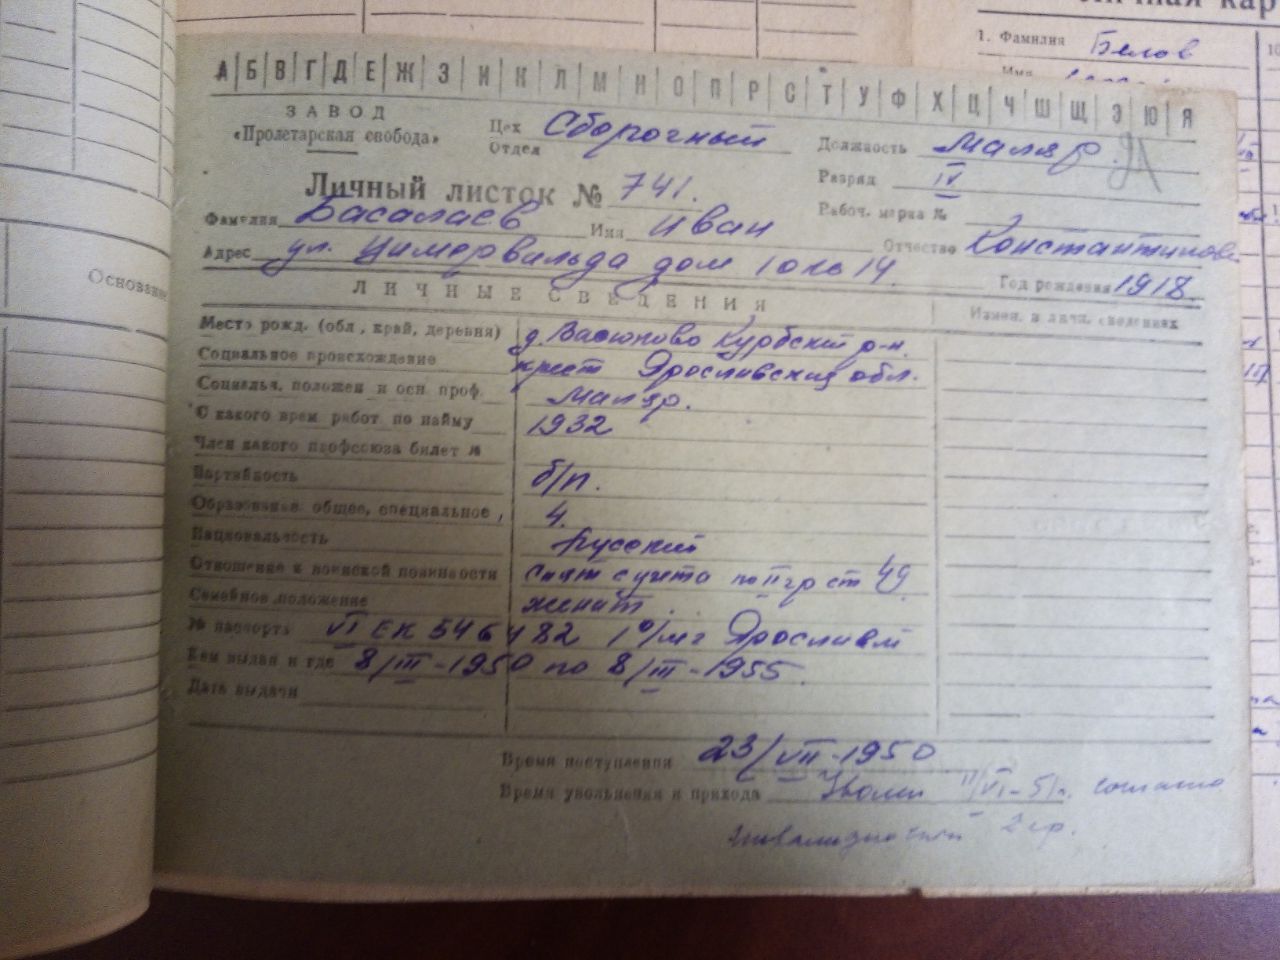 1. Фамилия Белов
Основание
А Б В Г Д Е Ж З И К Л М Н О П Р С Т У Ф Х Ц Ч Ш Щ Э Ю Я
ЗАВОД
«Пролетарская свобода»
Цех Отдел Сборочный
Должность Маляр.
Разряд IV
Личный листок № 741.
Рабоч. марка №
Фамилия Басалаев Имя Иван Отчество Константинов
Адрес ул. Цимервальда дом 1 окв 14. Год рождения 1918.
ЛИЧНЫЕ СВЕДЕНИЯ Измен. в личн. сведениях
Место рожд. (обл., край, деревня) д. Васюково Курбский р-н.
Социальное происхождение крест Ярославская обл.
Социальн. положен и осн. проф. Маляр.
С какого врем. работ по найму 1932
Член какого профсоюза билет №
Партийность б/п.
Образование общее, специальное, 4.
Национальность Русский
Отношение к воинской повинности Снят с учета по II гр ст 49
Семейное положение женат.
№ паспорта VI ЕК 546482 1 о/мг Ярославль
Кем выдан и где 8/III-1950 по 8/III-1955.
Дата выдачи
Время поступления 23/VII-1950
Время увольнения и прихода Уволен 11/VI-51г. согласно
Инвалидностью 2 гр.